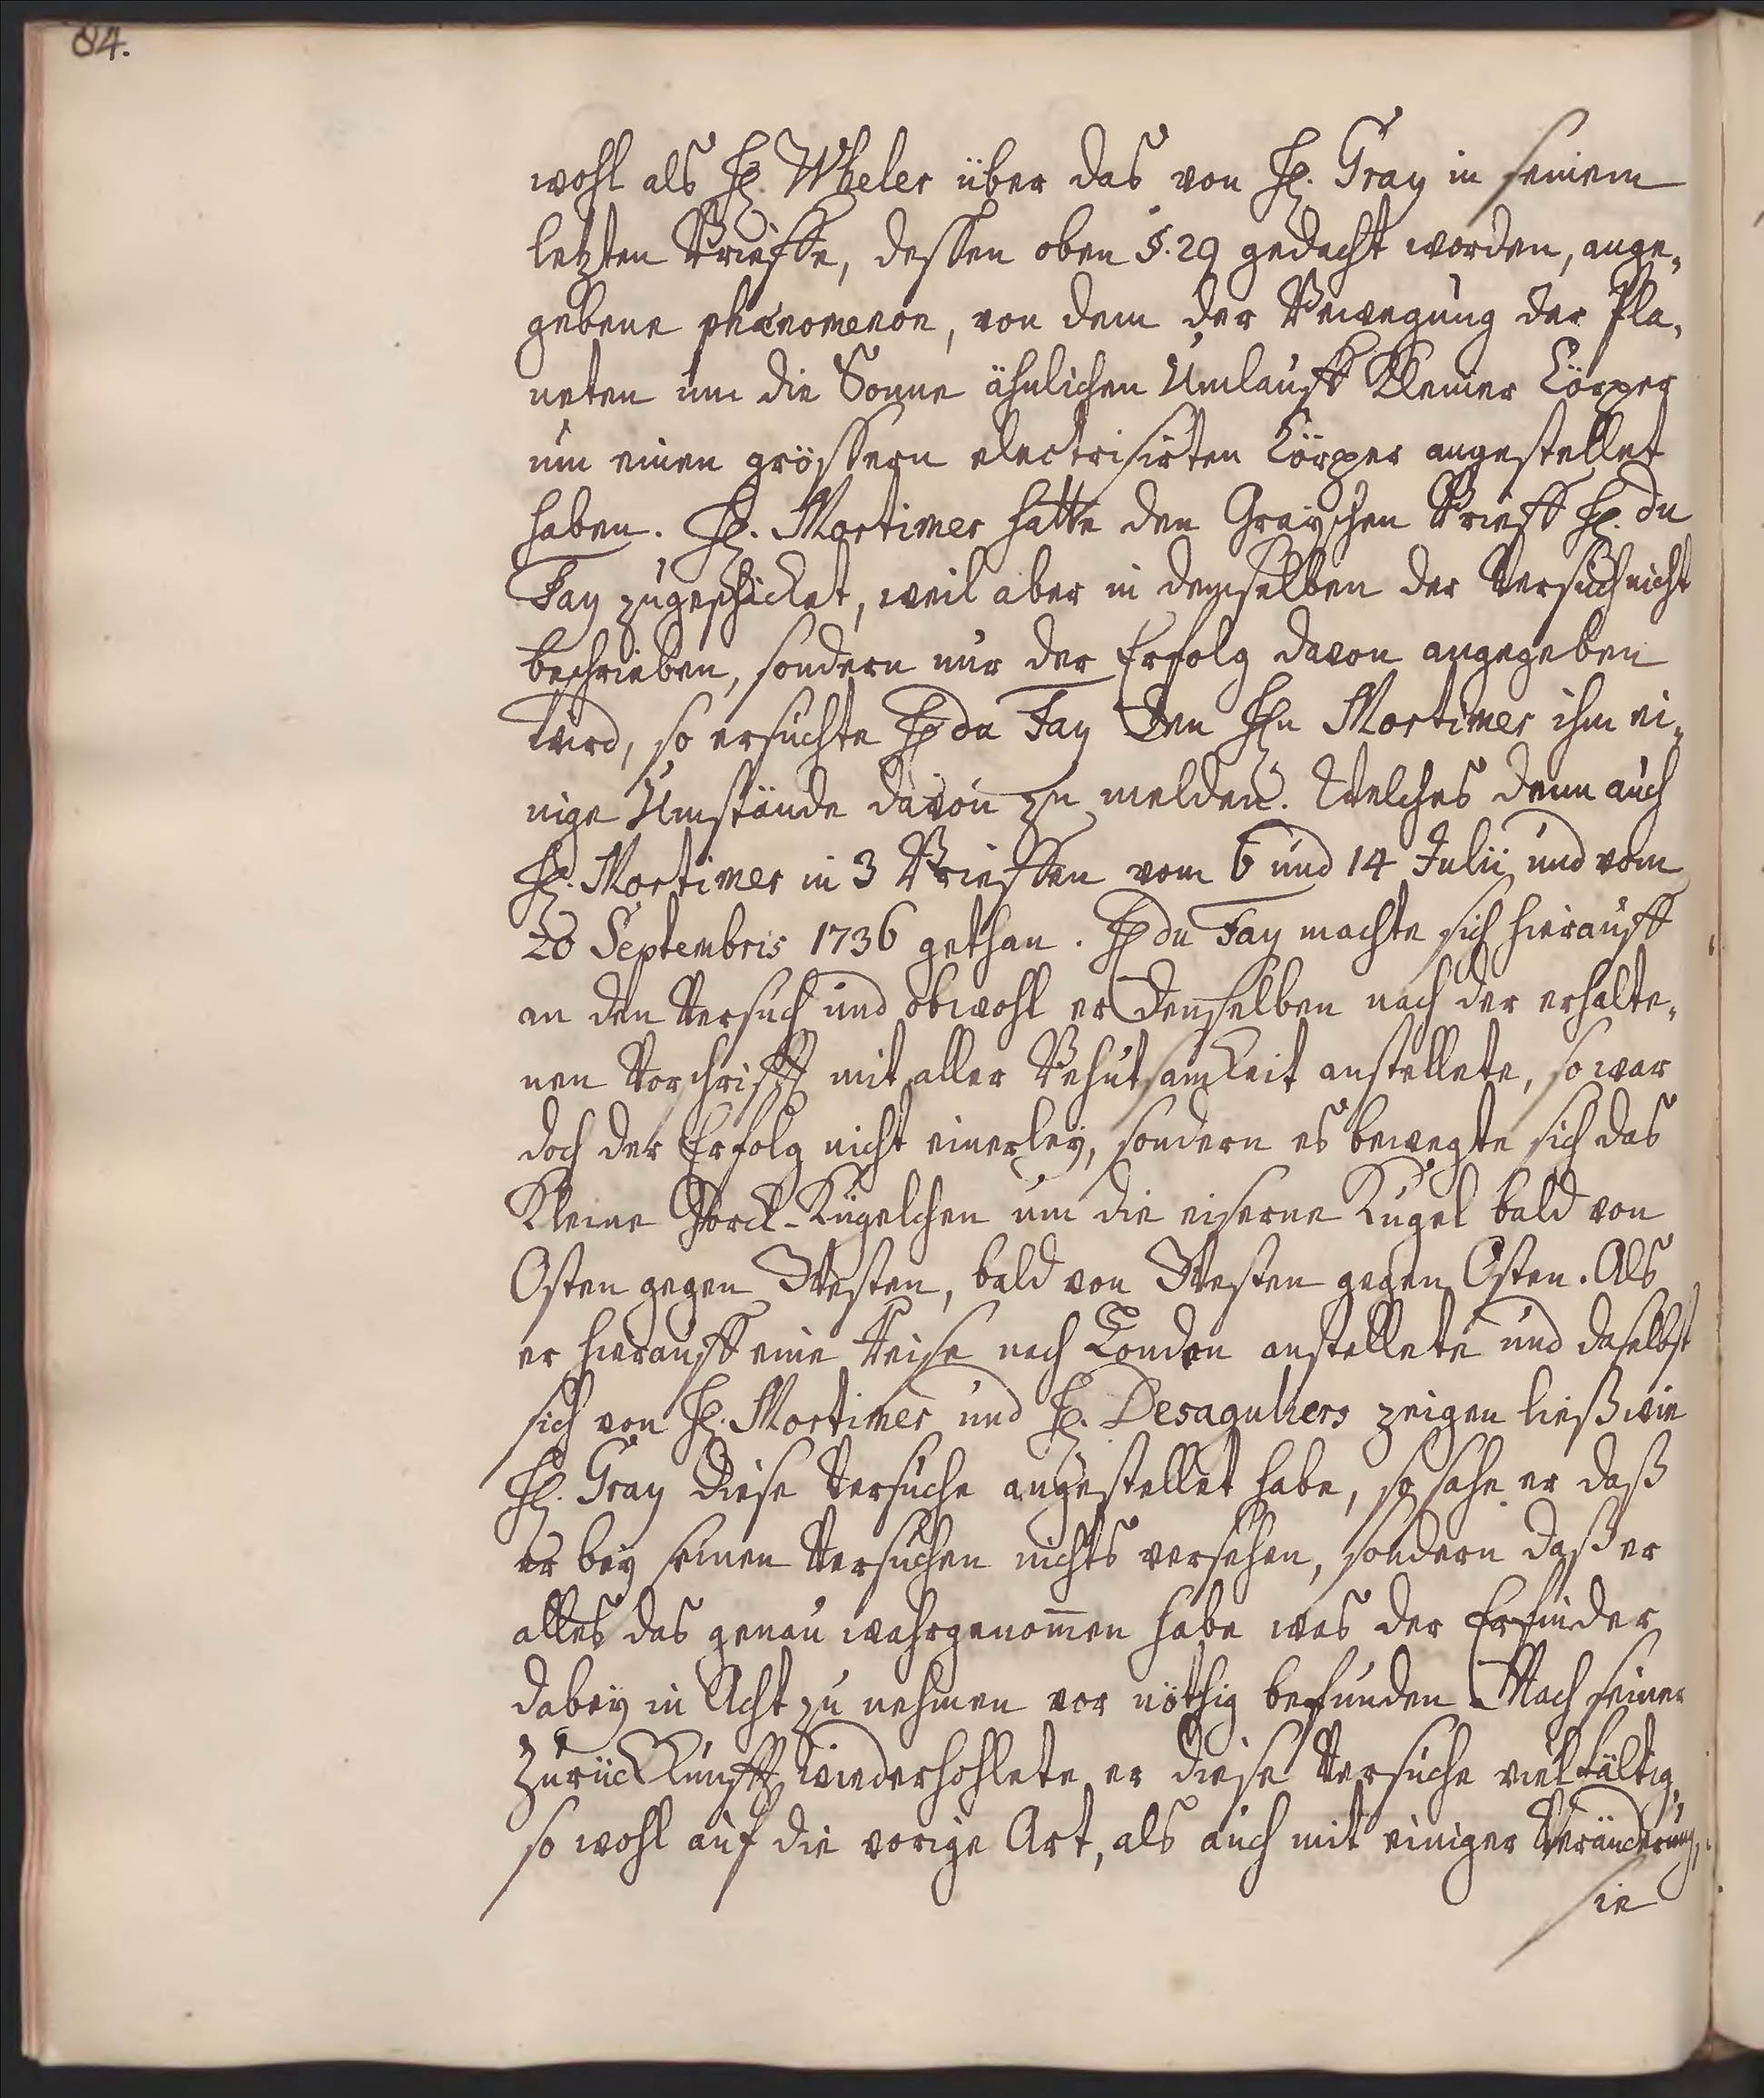 84.
wohl als H. Wheler über das von H. Gray in seinem
letzten Brieffe, dessen oben §. 29 gedacht worden, ange-
gebene phænomenon, von dem der Bewegung der Pla-
neten um die Sonne ähnlichen Umlaufft kleiner Cörper
um einen grössern electrisirten Cörper angestellet
haben. H. Mortimer hatte den Grayschen Brieff H. du
Fay zugeschicket, weil aber in demselben der Versuch nicht
beschrieben, sondern nur der Erfolg davon angegeben
wird, so ersuchte H du Fay den Hn Mortimer ihm ei-
nige Umstände davon zu melden. Welches denn auch
H. Mortimer in 3 Brieffen vom 6 und 14 Julii und vom
20 Septembris 1736 gethan. H du Fay machte sich hierauff
an den Versuch und obwohl er denselben nach der erhalte-
nen Vorschrifft mit aller Behutsamkeit anstellete, so war
doch der Erfolg nicht einerley, sondern es bewegte sich das
kleine Korck-Kügelchen um die eiserne Kugel bald von
Osten gegen Westen, bald von Westen gegen Osten. Als
er hierauff eine Reise nach London anstellete und daselbst
sich von H. Mortimer und H. Desaguliers zeigen ließ wie
H. Gray diese Versuche angestellet habe, so sahe er daß
er bey seinen Versuchen nichts versehen, sondern daß er
alles das genau wahrgenom̅en habe was der Erfinder
dabey in Acht zu nehmen vor nöthig befunden. Nach seiner
Zurückkunfft wiederhohlete er diese Versuche vielfältig,
so wohl auf die vorige Art, als auch mit einiger Veränderung,
sie